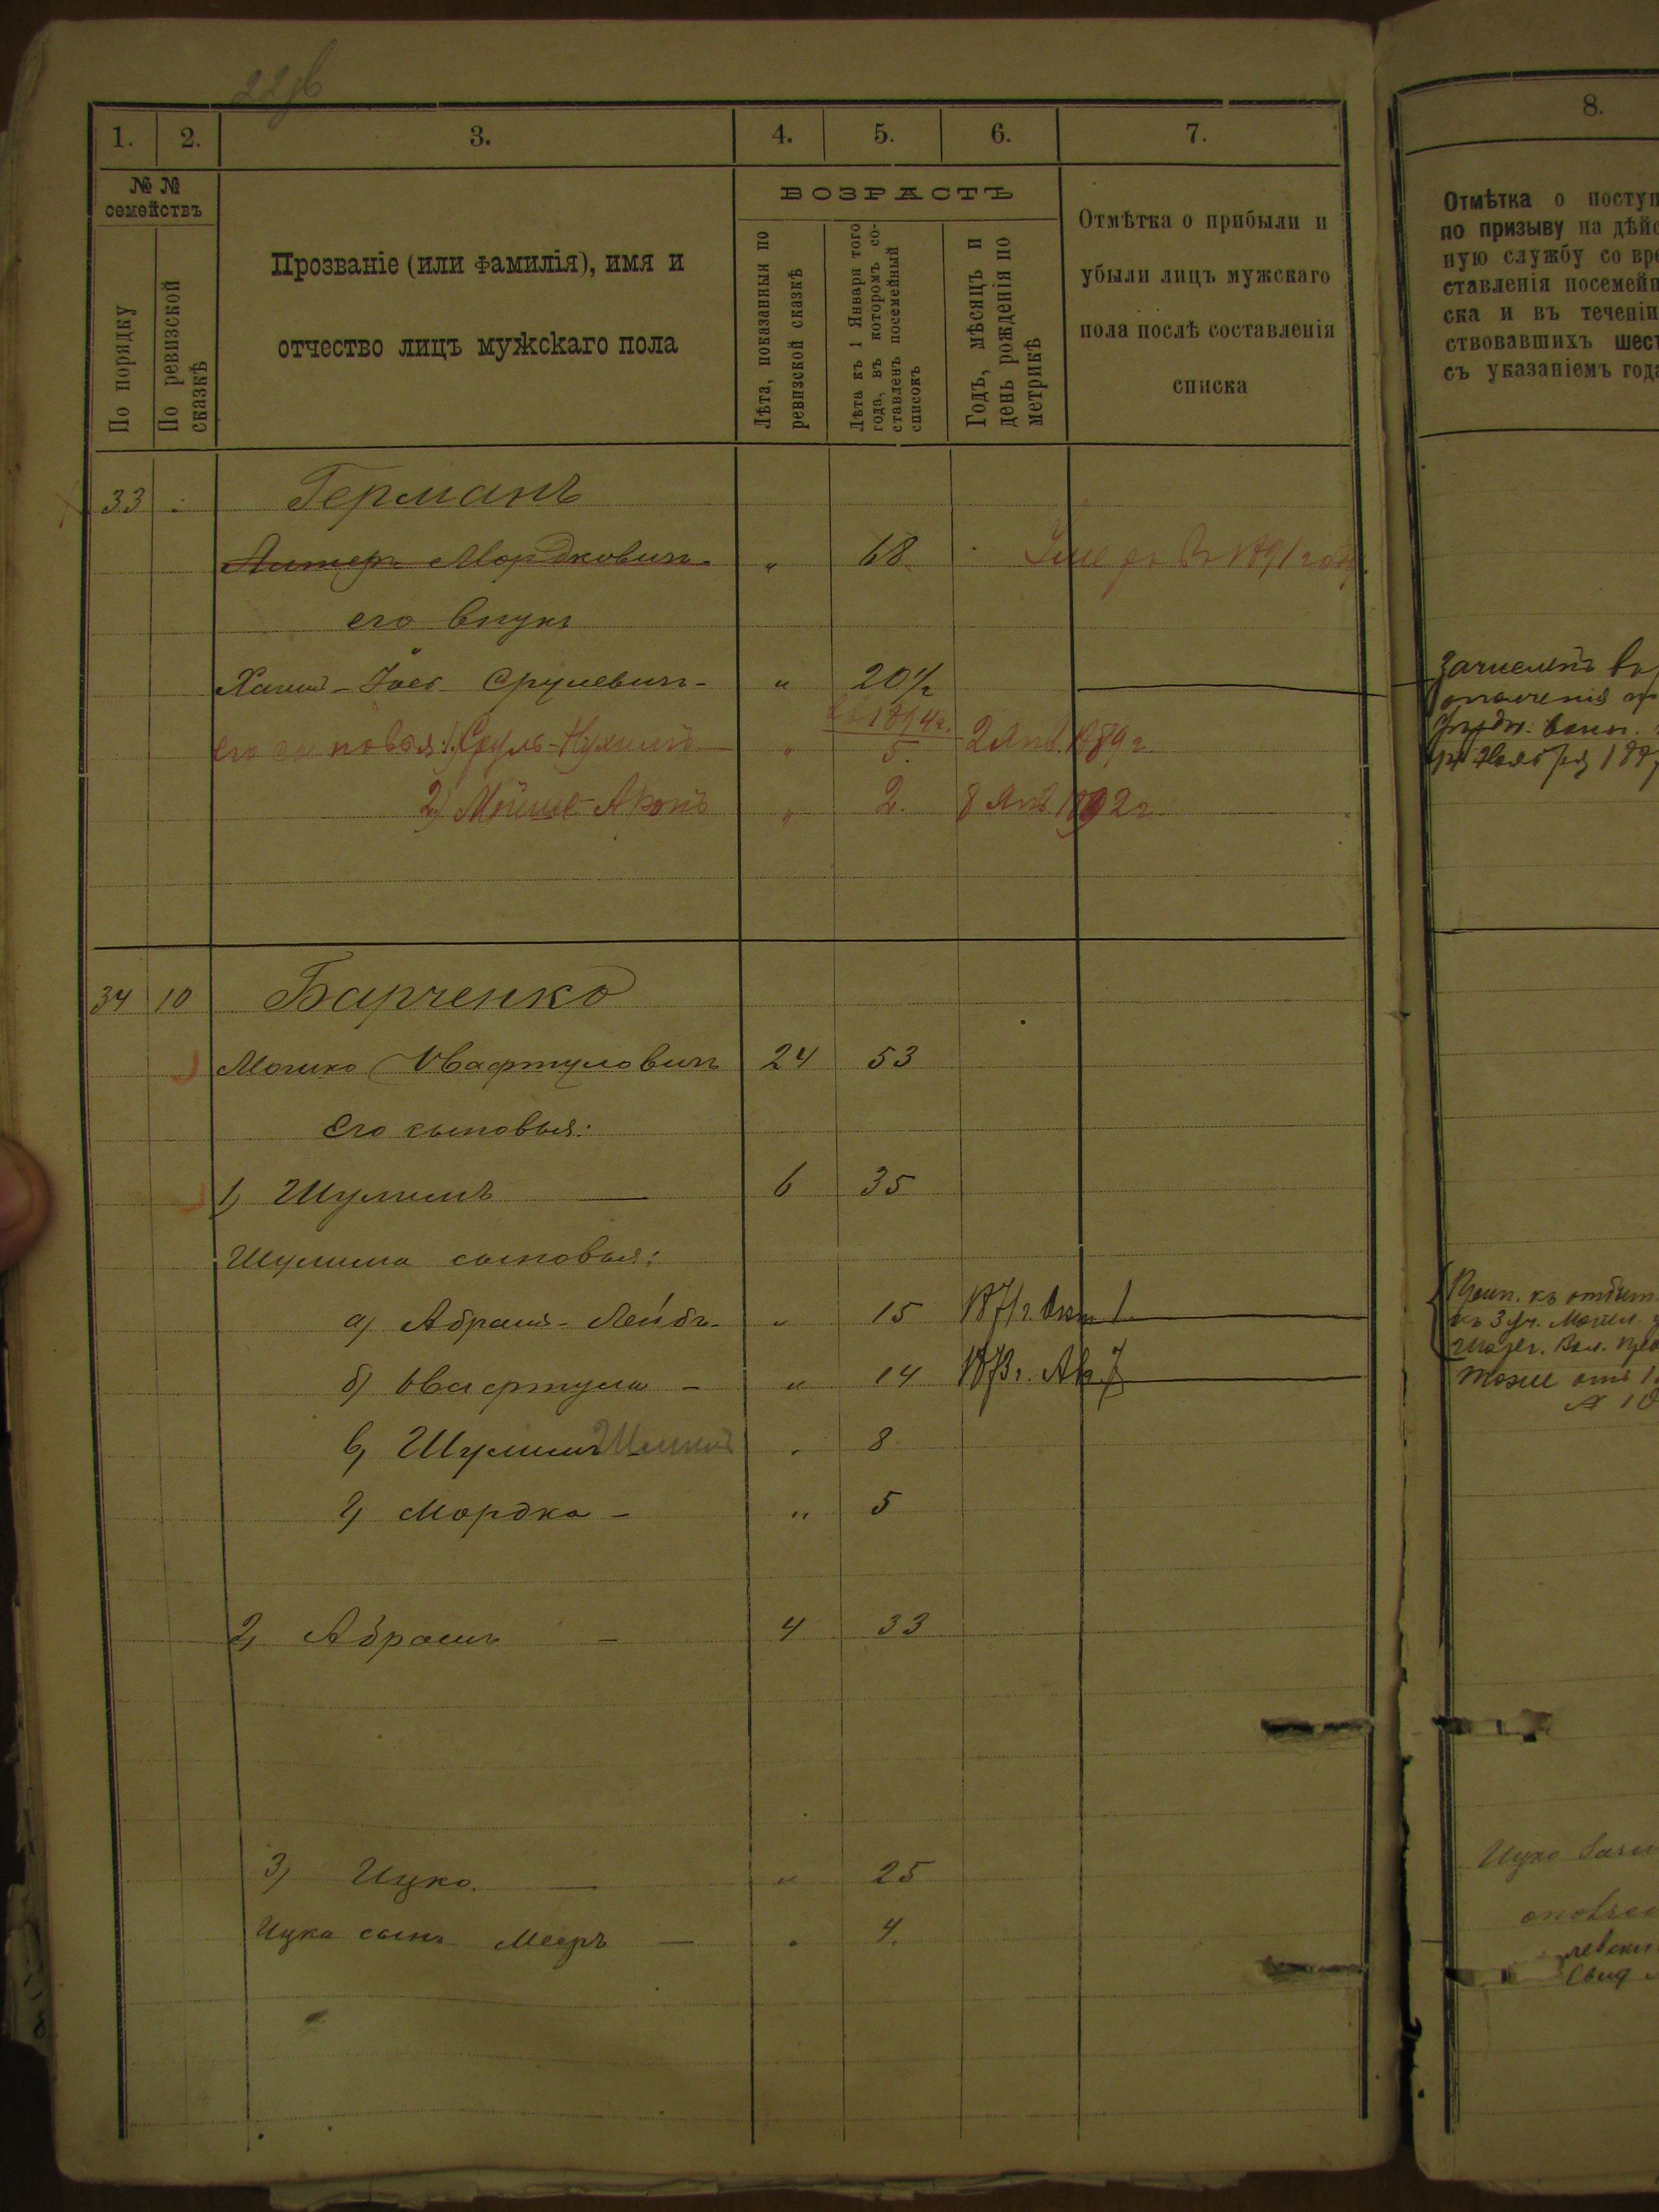 1. 2. 3. 4. 5. 6. 7.
№ № семействъ
По порядку
По ревизской сказкѣ
Прозваніе (или фамилія), имя и
отчество лицъ мужскаго пола
ВОЗРАСТЪ
Лѣта, показанныя по ревизской сказкѣ
Лѣта къ 1 Января того года, въ которомъ составленъ посемейный списокъ
Годъ, мѣсяцъ и день рожденія по метрикѣ
Отмѣтка о прибыли и
убыли лицъ мужскаго
пола послѣ составленія
списка
33 Германъ
Мордковичъ " 68 Умеръ въ 1891 году
его внукъ
Хаимъ-Іосъ Срулевичъ - " 20 1/2
въ 1894 г.
его сыновья: 1) Сруль-Нухимъ " 5. 2 Янв. 1889 г
2) Мойше-Аронъ " 2. 8 Янв. 1892 г
34 10 Барченко
Мошко Нафтуловичъ 24 53
его сыновья:
1) Шулимъ — 6 35
Шулима сыновья:
а) Абрамъ-Лейбъ- " 15 1871 г. Окт 1.
б) Нафтула - " 14 1873 г.
в) Шулимъ " 8
г) Мордко - " 5
2) Абрамъ - 4 33
3) Ицко. — " 25
Ицка сынъ Мееръ — " 4.
8.
Отмѣтка о поступ
по призыву на дѣйс
ную службу со вре
ставленія посемейн
ска и въ теченіи
ствовавшихъ шест
съ указаніемъ года
Зачисленъ въ
ополченія
Ицко